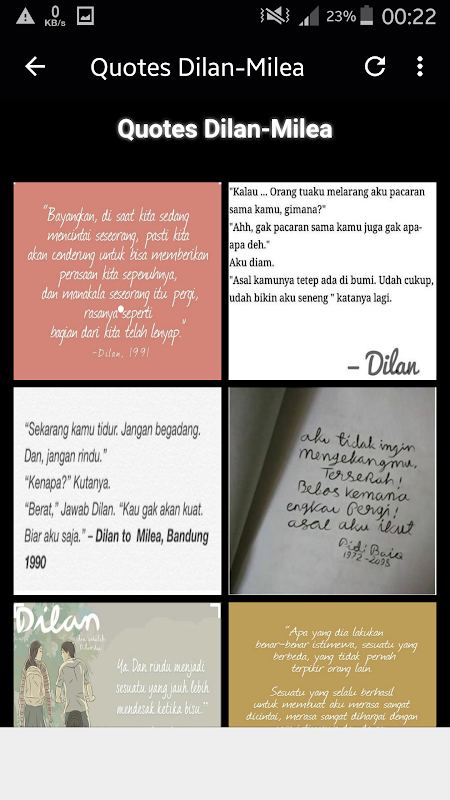 0
KB/s
23%
00:22
Quotes Dilan-Milea
Quotes Dilan-Milea
"Bayangkan, di saat kita sedang
mencintai seseorang, pasti kita
akan cenderung untuk bisa memberikan
perasaan kita sepenuhnya,
dan manakala seseorang itu pergi,
rasanya seperti
bagian dari kita telah lenyap."
-Dilan, 1991
"Kalau ... Orang tuaku melarang aku pacaran
sama kamu, gimana?"
"Ahh, gak pacaran sama kamu juga gak apa-
apa deh."
Aku diam.
"Asal kamunya tetep ada di bumi. Udah cukup,
udah bikin aku seneng " katanya lagi.
– Dilan
“Sekarang kamu tidur. Jangan begadang.
Dan, jangan rindu.”
“Kenapa?” Kutanya.
“Berat,” Jawab Dilan. “Kau gak akan kuat.
Biar aku saja.” – Dilan to Milea, Bandung
1990
aku tidak ingin
mengekangmu.
Terserah!
Bebas kemana
engkau pergi!
asal aku ikut
Pidi Baiq
1972-2098
Dilan
Ya. Dan rindu menjadi
sesuatu yang jauh lebih
mendesak ketika bisu.”
"Apa yang dia lakukan
benar-benar istimewa, sesuatu yang
berbeda, yang tidak pernah
terpikir orang lain.
Sesuatu yang selalu berhasil
untuk membuat aku merasa sangat
dicintai, merasa sangat dihargai dengan